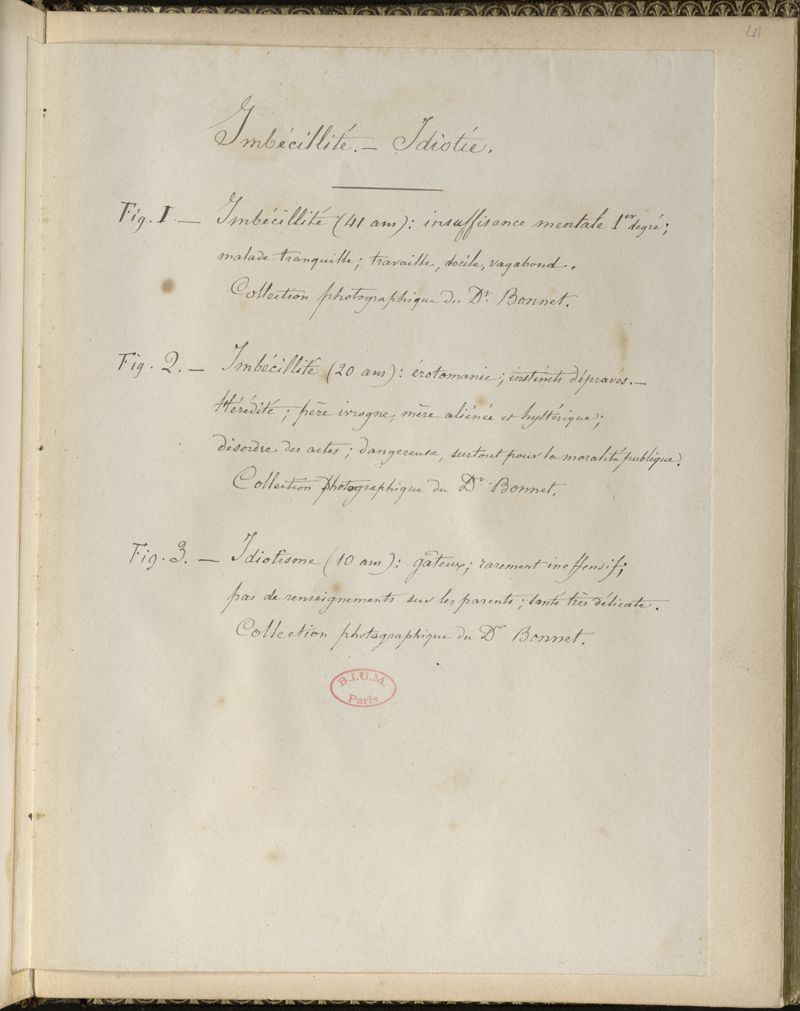 41
Imbécillité. — Idiotie.
Fig. 1 — Imbécillité (41 ans) : insuffisance mentale 1er degré ;
malade tranquille ; travaille, docile, vagabond.
Collection photographique du Dr. Bonnet.
Fig. 2. — Imbécillité (20 ans) : érotomanie ; instincts dépravés. —
Hérédité ; père ivrogne, mère aliénée et hystérique ;
désordre des actes ; dangereuse, surtout pour la moralité publique.
Collection photographique du Dr Bonnet.
Fig. 3. — Idiotisme (10 ans) : gâteux ; rarement inoffensif ;
pas de renseignements sur les parents ; santé très délicate.
Collection photographique du Dr Bonnet.
B.I.U.M.
Paris